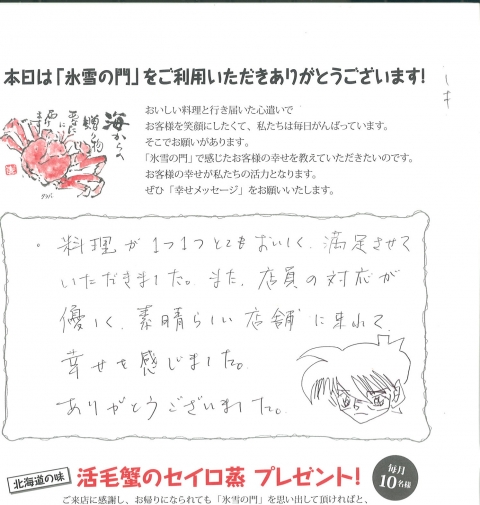 本日は「氷雪の門」をご利用いただきありがとうございます!
海からの
贈り物
おいしい料理と行き届いた心遣いで
お客様を笑顔にしたくて、私たちは毎日がんばっています。
そこでお願いがあります。
「氷雪の門」で感じたお客様の幸せを教えていただきたいのです。
お客様の幸せが私たちの活力となります。
ぜひ「幸せメッセージ」をお願いいたします。
・料理が1つ1つとてもおいしく、満足させて
いただきました。また、店員の対応が
優しく、素晴らしい店舗に来れて
幸せを感じました。
ありがとうございました。
北海道の味
活毛蟹のセイロ蒸 プレゼント!
毎月
10名様
ご来店に感謝し、お帰りになられても「氷雪の門」を思い出して頂ければと、